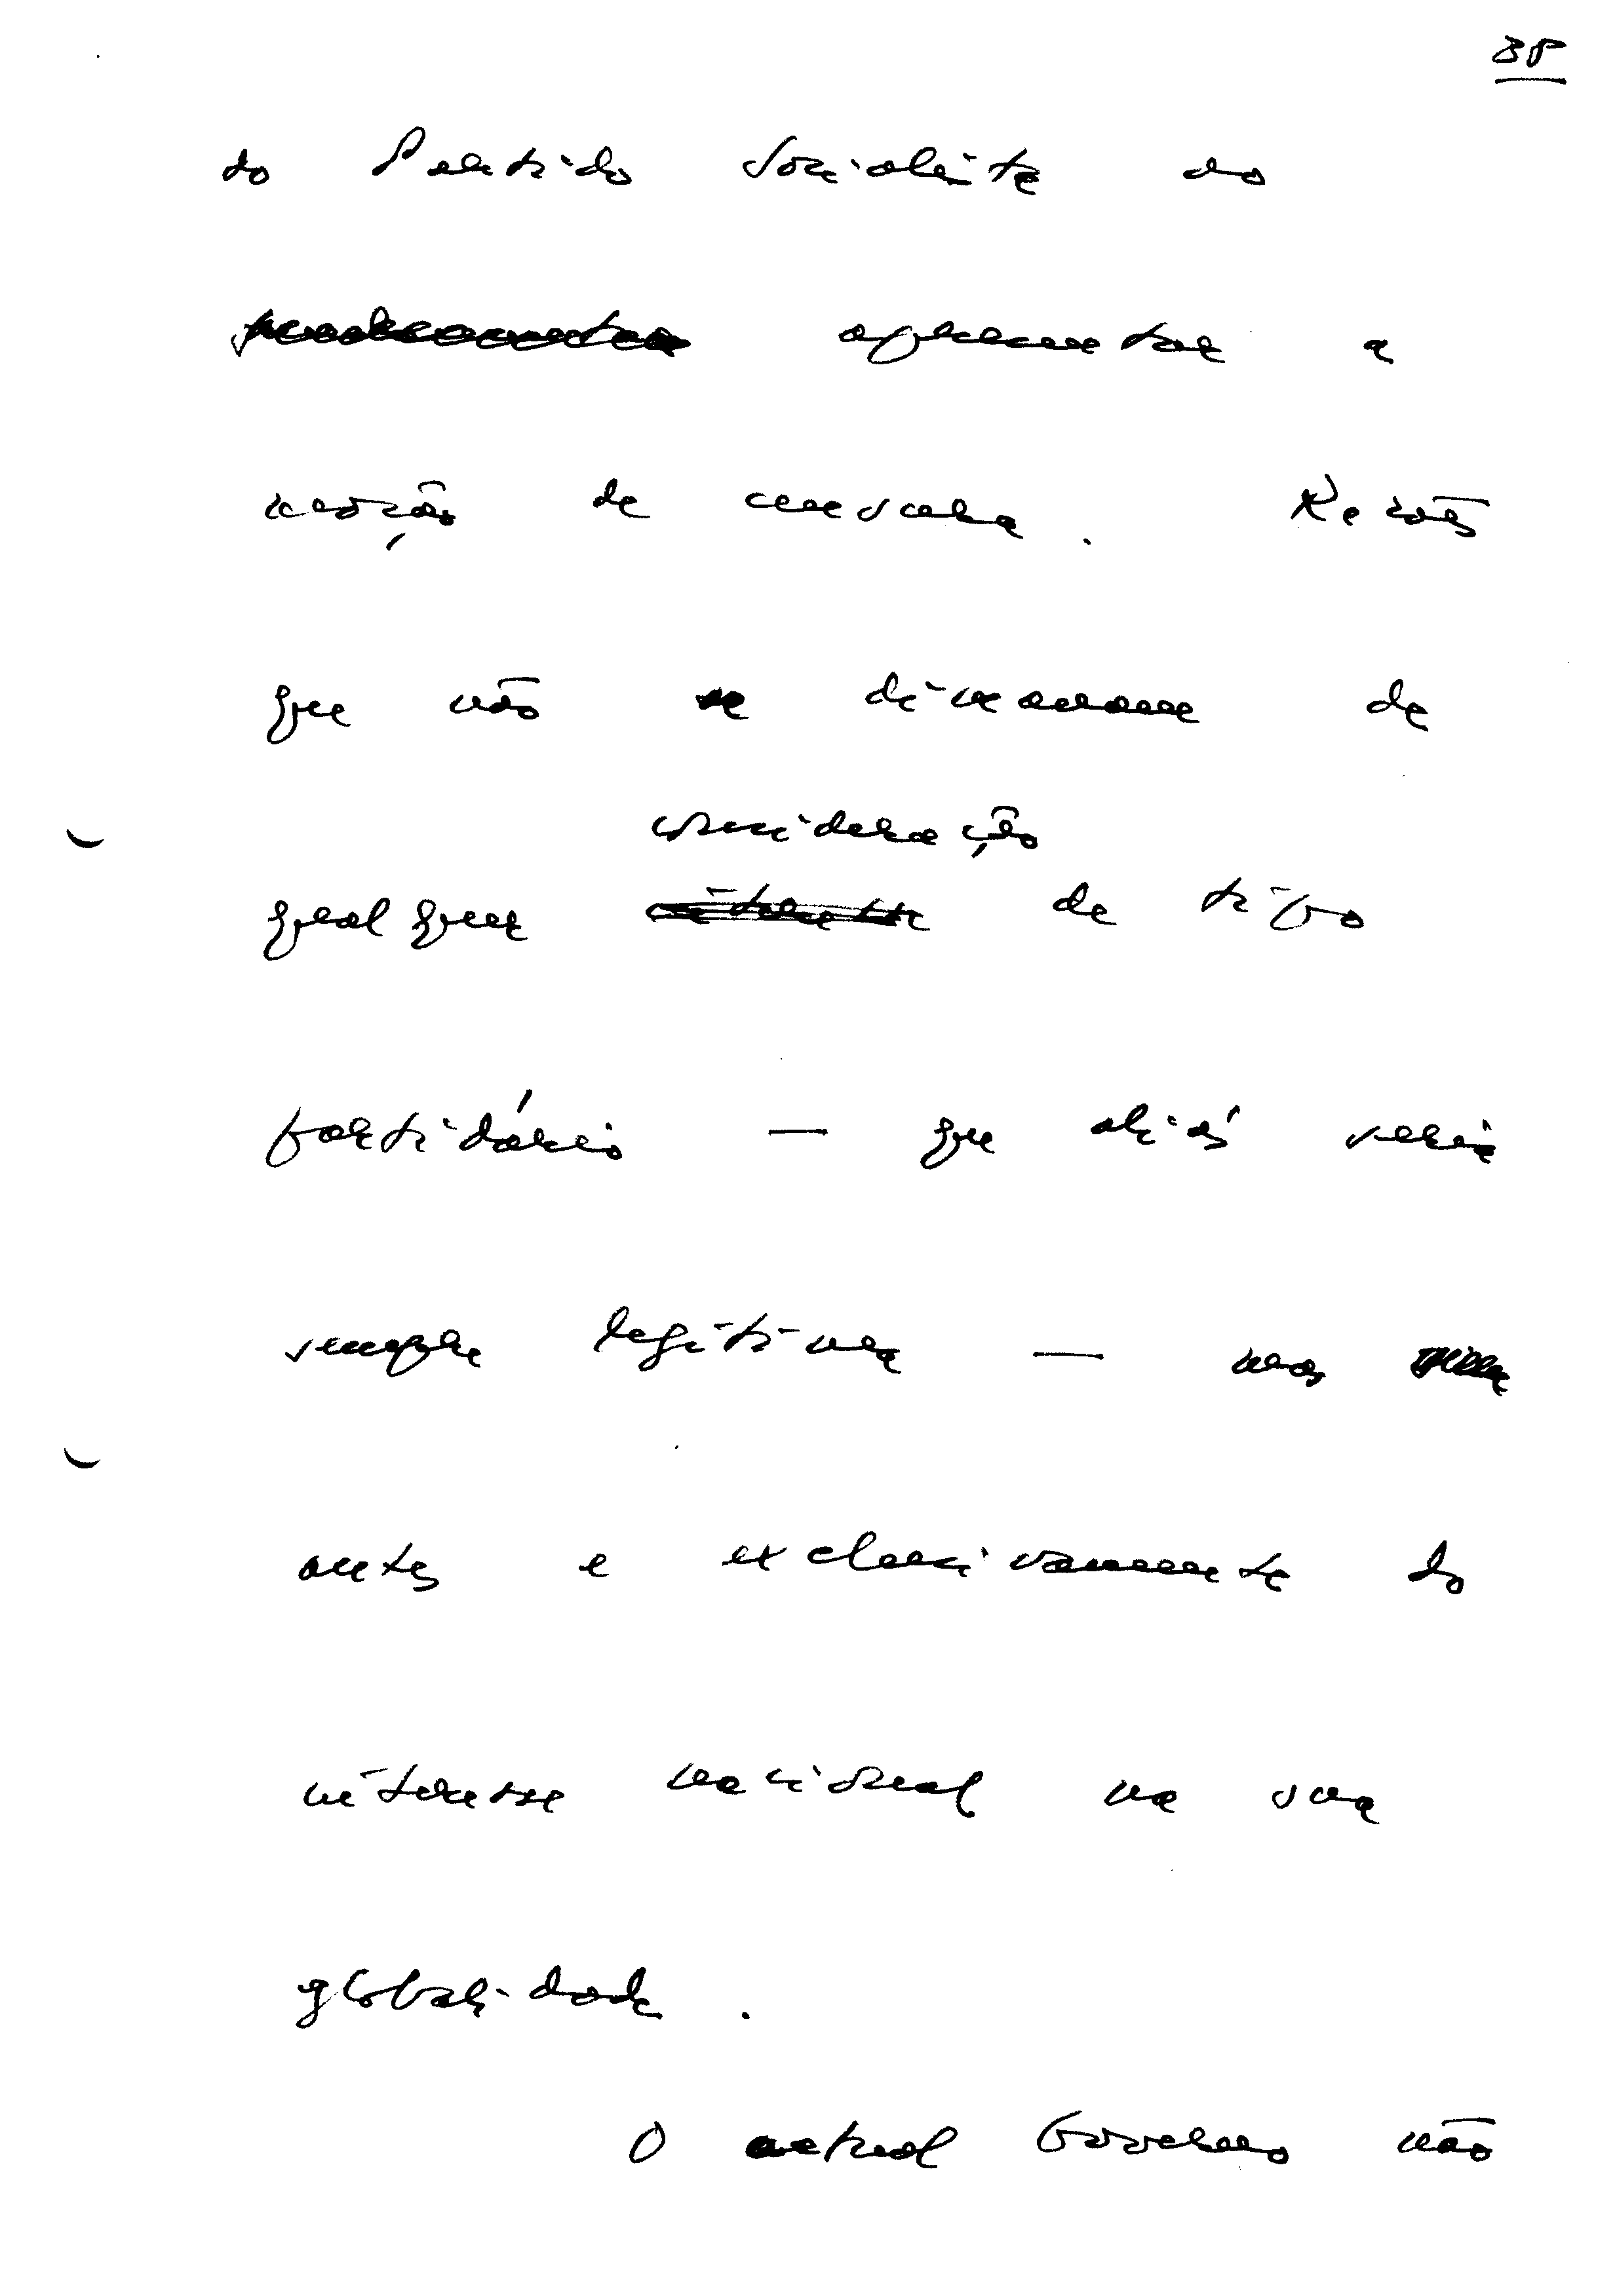 do Partido Socialista ao
apresentar a
moção de censura. Razões
que não se dimanam de
consideração
qualquer de tipo
partidário — que aliás seria
sempre legítima — mas
antes e exclusivamente do
interesse nacional na sua
globalidade.
O actual Governo não